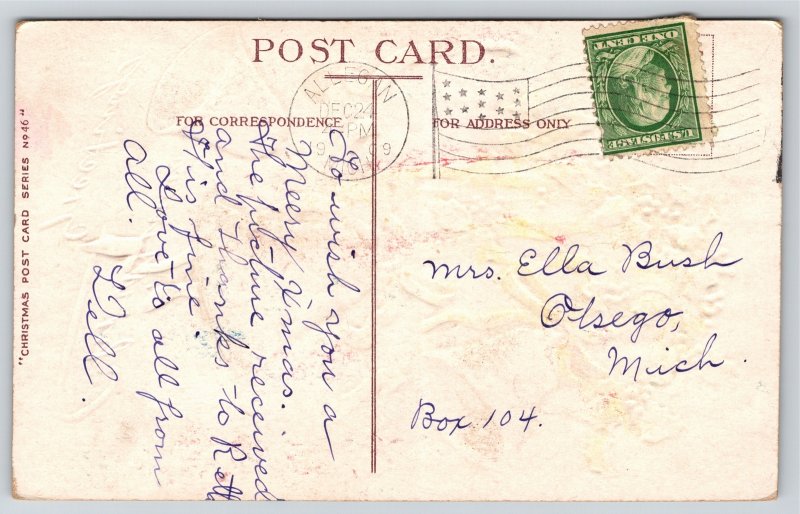 POST CARD.
ALLEGAN
DEC 24
PM
1909
FOR CORRESPONDENCE
FOR ADDRESS ONLY
U.S. POSTAGE
ONE CENT
"CHRISTMAS POST CARD SERIES Nº 46"
To wish you a
Merry X'mas.
The picture received
and thanks to Retta
it is fine.
Love to all from
all.
Dell.
Mrs. Ella Bush
Otsego,
Mich.
Box 104.